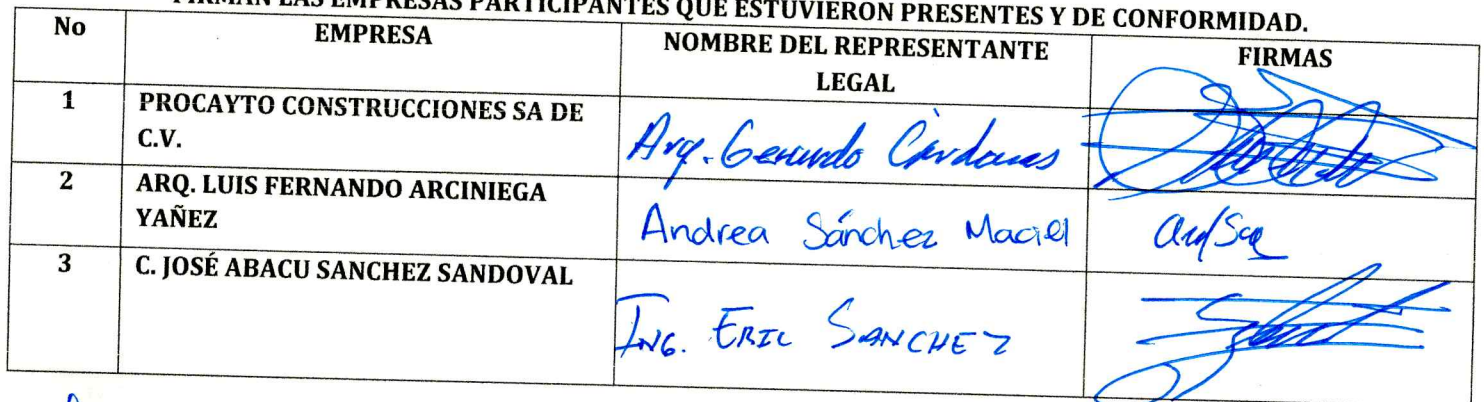 FIRMAN LAS EMPRESAS PARTICIPANTES QUE ESTUVIERON PRESENTES Y DE CONFORMIDAD.
No EMPRESA NOMBRE DEL REPRESENTANTE LEGAL FIRMAS
1 PROCAYTO CONSTRUCCIONES SA DE C.V. Arq. Gerardo Cárdenas
2 ARQ. LUIS FERNANDO ARCINIEGA YAÑEZ Andrea Sánchez Maciel
3 C. JOSÉ ABACU SANCHEZ SANDOVAL ING. ERIC SANCHEZ